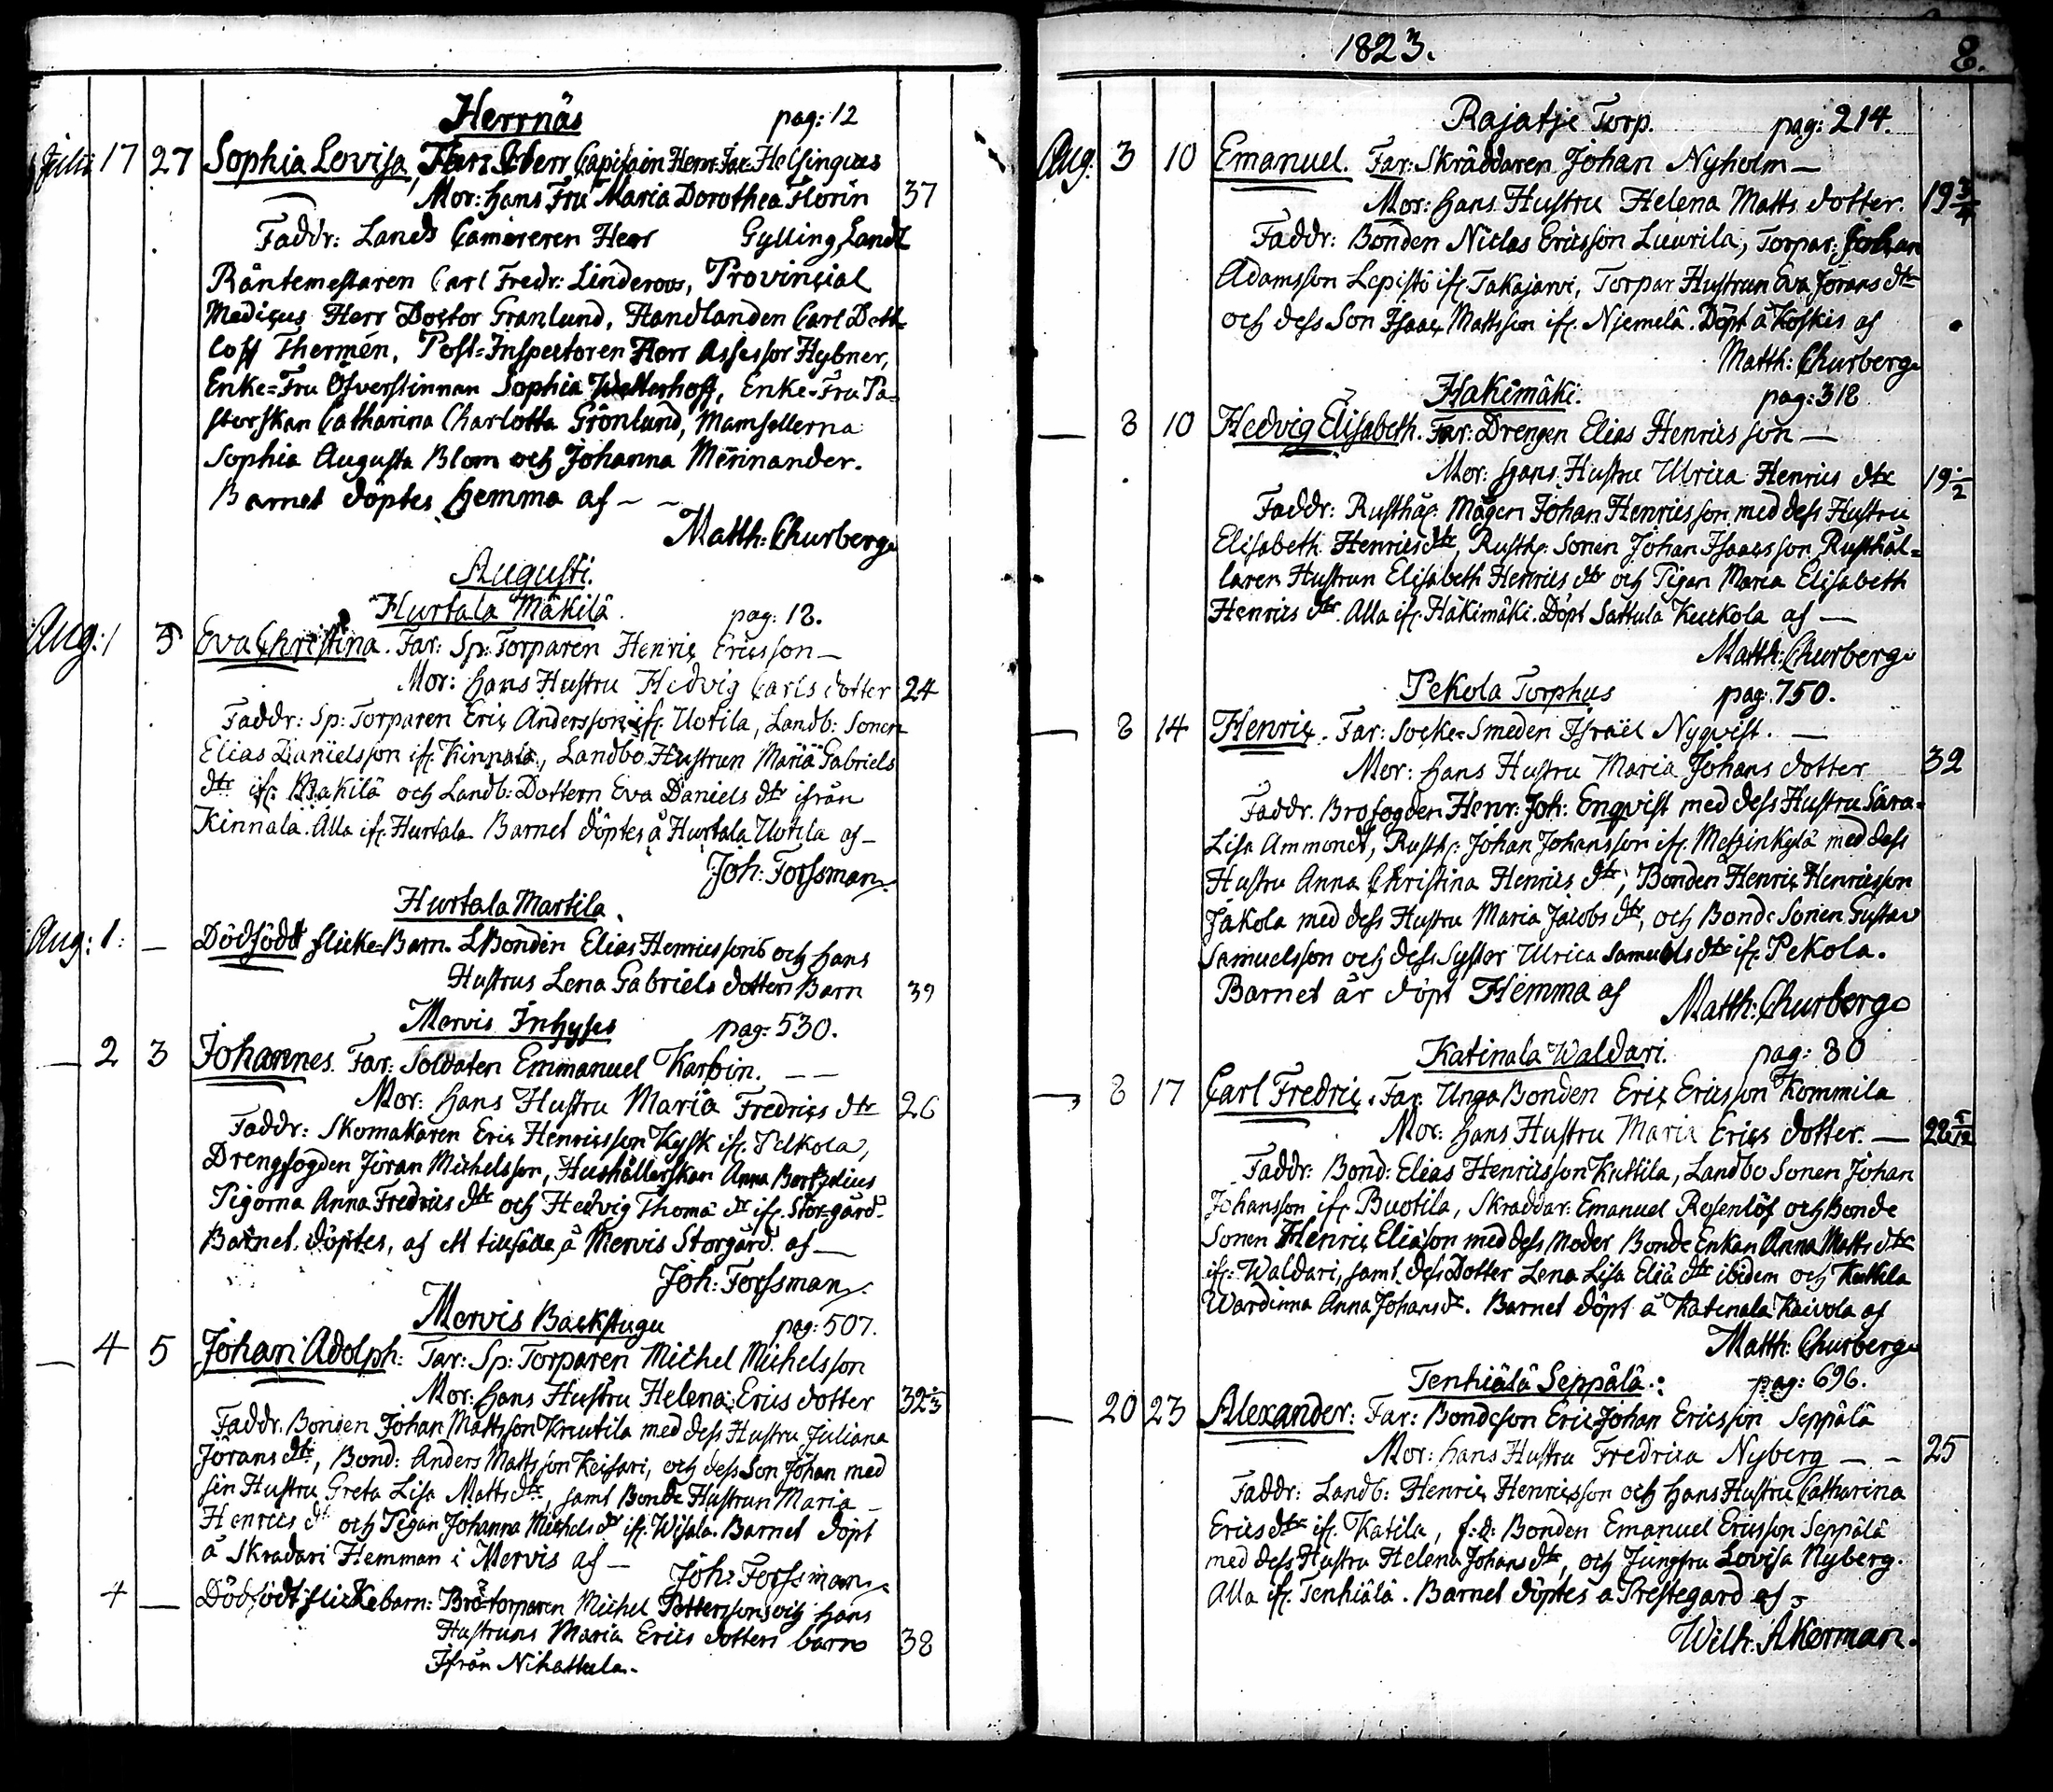 Herrnäs pag: 12
Julii 17 27 Sophia Lovisa, Capitain Helsingius
Mor: hans Fru Maria Dorothea Florin 37
Faddr: Lands Camereren Herr Gylling, Landt
Räntemestaren Carl Fredr: Linderoos, Provincial
Medicus Herr Doctor Granlund, Handlanden Carl Dett
loff Thermén, Post=Inspectoren Herr Assessor Hybner,
Enke=Fru Öfverstinnan Sophia Wetterhoff, Enke=Fru Pa=
storskan Catharina Charlotta Grönlund, Mamsellerna
Sophia Augusta Blom och Johanna Mennander.
Barnet döptes hemma af – –
Matth: Churberg
Augusti.
Hurtala Mäkilä. pag: 18.
Aug: 1 3 Eva Christina. Far: Sp: Torparen Henric Ericsson –
Mor: hans Hustru Hedvig Carls dotter 24
Faddr: Sp: Torparen Eric Andersson if. Uotila, Landb: Sonen
Elias Danielsson if. Kinnala, Landbo Hustrun Maria Gabriels
dtr if. Mäkilä och Landb: Dottern Eva Daniels dtr ifrån
Kinnala. Alla if. Hurtala. Barnet döptes å Hurtala Uotila af –
Joh: Forssman
Hurtala Martila.
Aug: 1. – Dödfödt flicke=Barn. LBonden Elias Henricssons och hans
Hustrus Lena Gabriels dotters Barn 39
Mervis Inhyses pag: 530.
– 2 3 Johannes. Far: Soldaten Emmanuel Karbin. – –
Mor: hans Hustru Maria Fredrics dtr 26
Faddr: Skomakaren Eric Henricsson Kysk if. Pelkola,
Drengfogden Jöran Michelsson, Hushållerskan Anna Bertzelius
Pigorna Anna Fredrics dtr och Hedvig Thoma dr if. Stor=gård.
Barnet döptes, af ett tillfälle, å Mervis Storgård af –
Joh: Forssman
Mervis Backstugu pag: 507.
– 4 5 Johan Adolph: Far: Sp: Torparen Michel Michelsson
Mor: hans Hustru Helena Erics dotter 32 2/3
Faddr. Bonden Johan Mattsson Knutila med dess Hustru Juliana
Jörans dtr, Bond: Anders Mattsson Keisari, och dess Son Johan med
sin Hustru Greta Lisa Matts dtr, samt Bonde Hustrun Maria –
Henrics dr och Pigan Johanna Michels dr if. Wisala. Barnet döpt
å Skradari Hemman i Mervis af –
Joh: Forssman
4 – Dödfödt flickebarn: Brotorparen Michel Petterssons och hans
Hustrus Maria Erics dotters barn 38
Ifrån Nihattula.
1823. 8.
Rajatje Torp. pag: 214.
Aug. 3 10 Emanuel. Far: Skräddaren Johan Nyholm –
Mor: hans Hustru Helena Matts dotter. 19 3/4
Faddr: Bonden Niclas Ericsson Luurila, Torpar: Johan
Adamsson Lepistö if. Takajärvi, Torpar Hustrun Eva Jörans dtr
och dess Son Isaac Mattsson if. Njemelä. Döpt å Koskis af
Matth: Churberg
Hakimäki. pag: 318
– 8 10 Hedvig Elisabeth. Far: Drengen Elias Henricsson –
Mor: hans Hustru Ulrica Henrics dtr 19 1/2
Faddr: Rusthål: Mågen Johan Henricsson med dess Hustru
Elisabeth Henrics dtr, Rusth: Sonen Johan Isaacsson, Rusthål=
laren Hustrun Elisabeth Henrics dtr och Pigan Maria Elisabeth
Henrics dtr. Alla if. Häkimäki. Döpt Sattula Kuckola af –
Matth: Churberg
Pekola Torphus pag: 750.
– 8 14 Henric. Far: Socke=Smeden Israël Nyqvist. –
Mor: hans Hustru Maria Johans dotter 32
Faddr. Brofogden Henr: Joh: Enqvist med dess Hustru Sara
Lisa Ammondt, Rusth: Johan Johansson if. Metzinkylä med dess
Hustru Anna Christina Henrics dtr, Bonden Henric Henricsson
Jäkola med dess Hustru Maria Jacobs dtr, och Bonde Sonen Gustav
Samuelsson och dess Syster Ulrica Samuels dtr if. Pekola.
Barnet är döpt Hemma af Matth: Churberg
Katinala Waldari. pag: 80
– 8 17 Carl Fredric. Far: Unga Bonden Eric Ericsson Kommila
Mor: hans Hustru Maria Erics dotter. – 22 5/12
Faddr: Bond: Elias Henricsson Kuttila, Landbo Sonen Johan
Johansson if. Buotila, Skraddar: Emanuel Rosenlöf och Bonde
Sonen Henric Eliasson med dess Moder Bonde Enkan Anna Matts dtr
if. Waldari, samt dess Dotter Lena Lisa Eliä dtr ibidem och Kuttila
Wärdinna Anna Johans dr. Barnet döpt å Katinala Kaivola af
Matth: Churberg
Tenhiälä Seppälä. pag: 696.
– 20 23 Alexander: Far: Bondeson Eric Johan Ericsson Seppälä
Mor: hans Hustru Fredrica Nyberg – – 25
Faddr: Landb: Henric Henricsson och hans Hustru Catharina
Erics dtr if. Katila, f:d: Bonden Emanuel Ericsson Seppälä
med dess Hustru Helena Johans dtr, och Jungfru Lovisa Nyberg.
Alla if. Tenhiälä. Barnet döptes å Prestegård af –
Wilh: Åkerman.